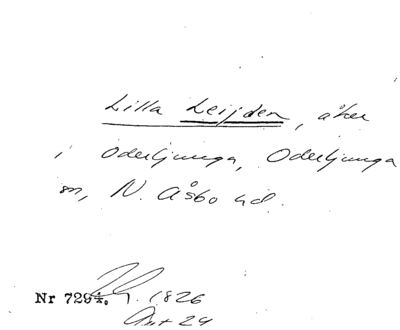 Lilla Leijden, åker
i Oderljunga, Oderljunga
sn, N. Åsbo hd.
Nr 7294. 1826
Akt 24